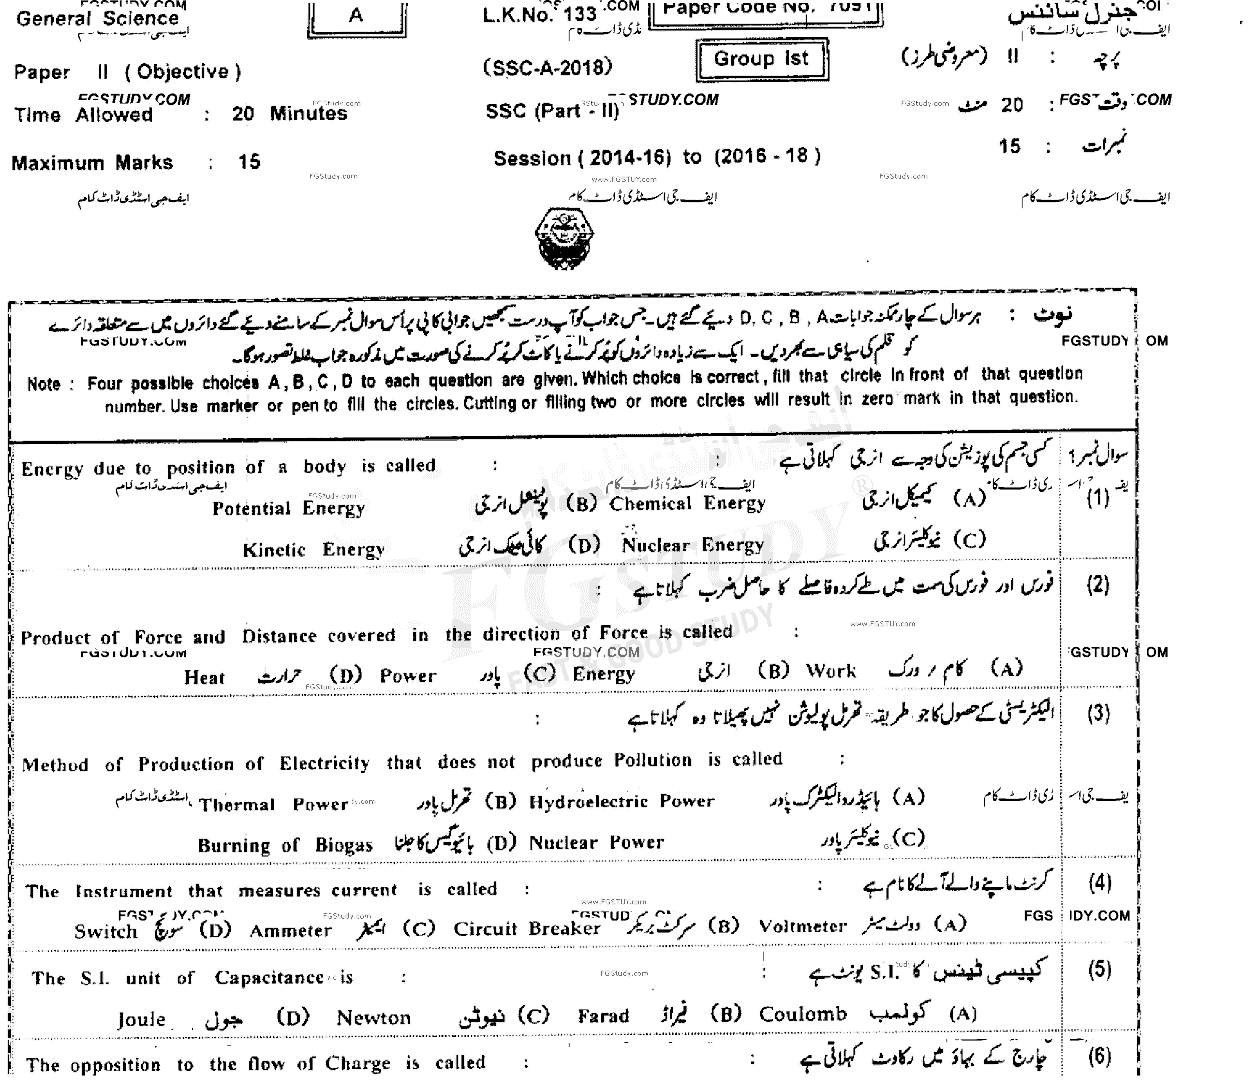 General Science
A
L.K.No. 133
Paper Code No. 7091
جنرل سائنس
Paper II ( Objective )
(SSC-A-2018)
Group Ist
پرچہ : II (معروضی طرز)
FGSTUDY.COM
Time Allowed : 20 Minutes
SSC (Part - II)
STUDY.COM
وقت : 20 منٹ
Maximum Marks : 15
Session ( 2014-16) to (2016 - 18 )
نمبرات : 15
FGStudy.com
www.FGSTUY.com
FGStudy.com
ایف جی اسٹڈی ڈاٹ کام
ایف جی اسٹڈی ڈاٹ کام
ایف جی اسٹڈی ڈاٹ کام
نوٹ : ہر سوال کے چار ممکنہ جوابات D, C, B, A دیئے گئے ہیں۔ جس جواب کو آپ درست سمجھیں جوابی کاپی پر اُس سوال نمبر کے سامنے دیئے گئے دائروں میں سے متعلقہ دائرے
کو قلم کی سیاہی سے بھر دیں۔ ایک سے زیادہ دائروں کو پُر کرنے یا کاٹ کر پُر کرنے کی صورت میں مذکورہ جواب غلط تصور ہوگا۔
Note : Four possible choices A, B, C, D to each question are given. Which choice is correct, fill that circle in front of that question
number. Use marker or pen to fill the circles. Cutting or filling two or more circles will result in zero mark in that question.
سوال نمبر ۱ کسی جسم کی پوزیشن کی وجہ سے انرجی کہلاتی ہے :
Energy due to position of a body is called :
(1) (A) کیمیکل انرجی Chemical Energy (B) پوٹینشل انرجی Potential Energy
(C) نیوکلیئر انرجی Nuclear Energy (D) کائی نیٹک انرجی Kinetic Energy
(2) فورس اور فورس کی سمت میں طے کردہ فاصلے کا حاصل ضرب کہلاتا ہے :
Product of Force and Distance covered in the direction of Force is called :
(A) کام / ورک Work (B) انرجی Energy (C) پاور Power (D) حرارت Heat
(3) الیکٹریسٹی کے حصول کا جو طریقہ تھرمل پولیوشن نہیں پھیلاتا وہ کہلاتا ہے :
Method of Production of Electricity that does not produce Pollution is called :
(A) ہائیڈرو الیکٹرک پاور Hydroelectric Power (B) تھرمل پاور Thermal Power
(C) نیوکلیئر پاور Nuclear Power (D) بائیو گیس کا جلنا Burning of Biogas
(4) کرنٹ ماپنے والے آلے کا نام ہے :
The Instrument that measures current is called :
(A) وولٹ میٹر Voltmeter (B) سرکٹ بریکر Circuit Breaker (C) ایمیٹر Ammeter (D) سوئچ Switch
(5) کپیسی ٹینس کا S.I. یونٹ ہے :
The S.I. unit of Capacitance is :
(A) کولمب Coulomb (B) فیراڈ Farad (C) نیوٹن Newton (D) جول Joule
(6) چارج کے بہاؤ میں رکاوٹ کہلاتی ہے :
The opposition to the flow of Charge is called :
FGSTUDY
FAST & GOOD STUDY